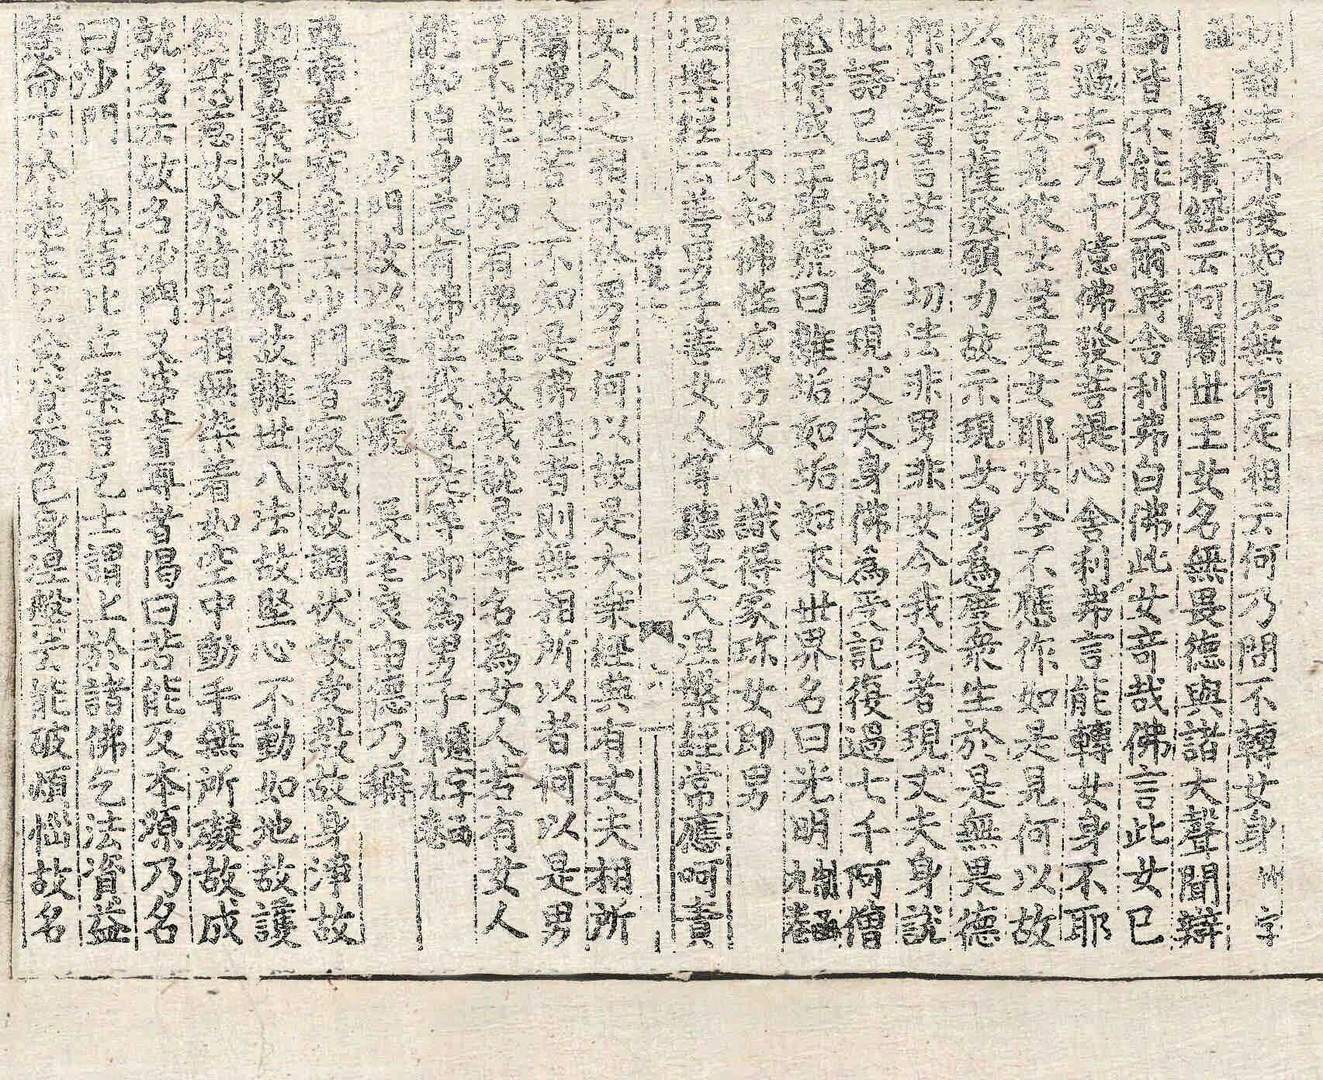 切諸法亦復如是無有定相云何乃問不轉女身 字
函
寶積經云阿闍世王女名無畏德與諸大聲聞辯
論皆不能及爾時舍利弗白佛此女奇哉佛言此女已
於過去九十億佛發菩提心舍利弗言能轉女身不耶
佛言汝見彼女豈是女耶汝今不應作如是見何以故
以是菩薩發願力故示現女身為度衆生於是無畏德
作是誓言若一切法非男非女今我今者現丈夫身說
此語已即滅女身現丈夫身佛為受記復過七千阿僧
祇得成正覺號曰離垢如垢如來世界名曰光明
不知佛性成男女 識得家珎女即男
涅槃經云善男子善女人等聽是大涅槃經常應呵責
女人之相求於男子何以故是大乘經典有丈夫相所
謂佛性若人不知是佛性者則無相所以者何以是男
子不能自知有佛性故我說是等名為女人若有女人
能知自身定有佛性我說是等即為男子
沙門故以道為號 長老良由德乃稱
寶積云沙門者寂滅故調伏故受教故身淨故
如實義故得解脫故離世八法故堅心不動如地故護
彼我意故於諸形相無染著如空中動手無所礙故成
就多法故名沙門又法昔耳者偈曰若能反本源乃名
曰沙門 梵語比丘秦言乞士謂上於諸佛乞法資益
慧命下於施主乞食資益已身涅槃云能破煩惱故名